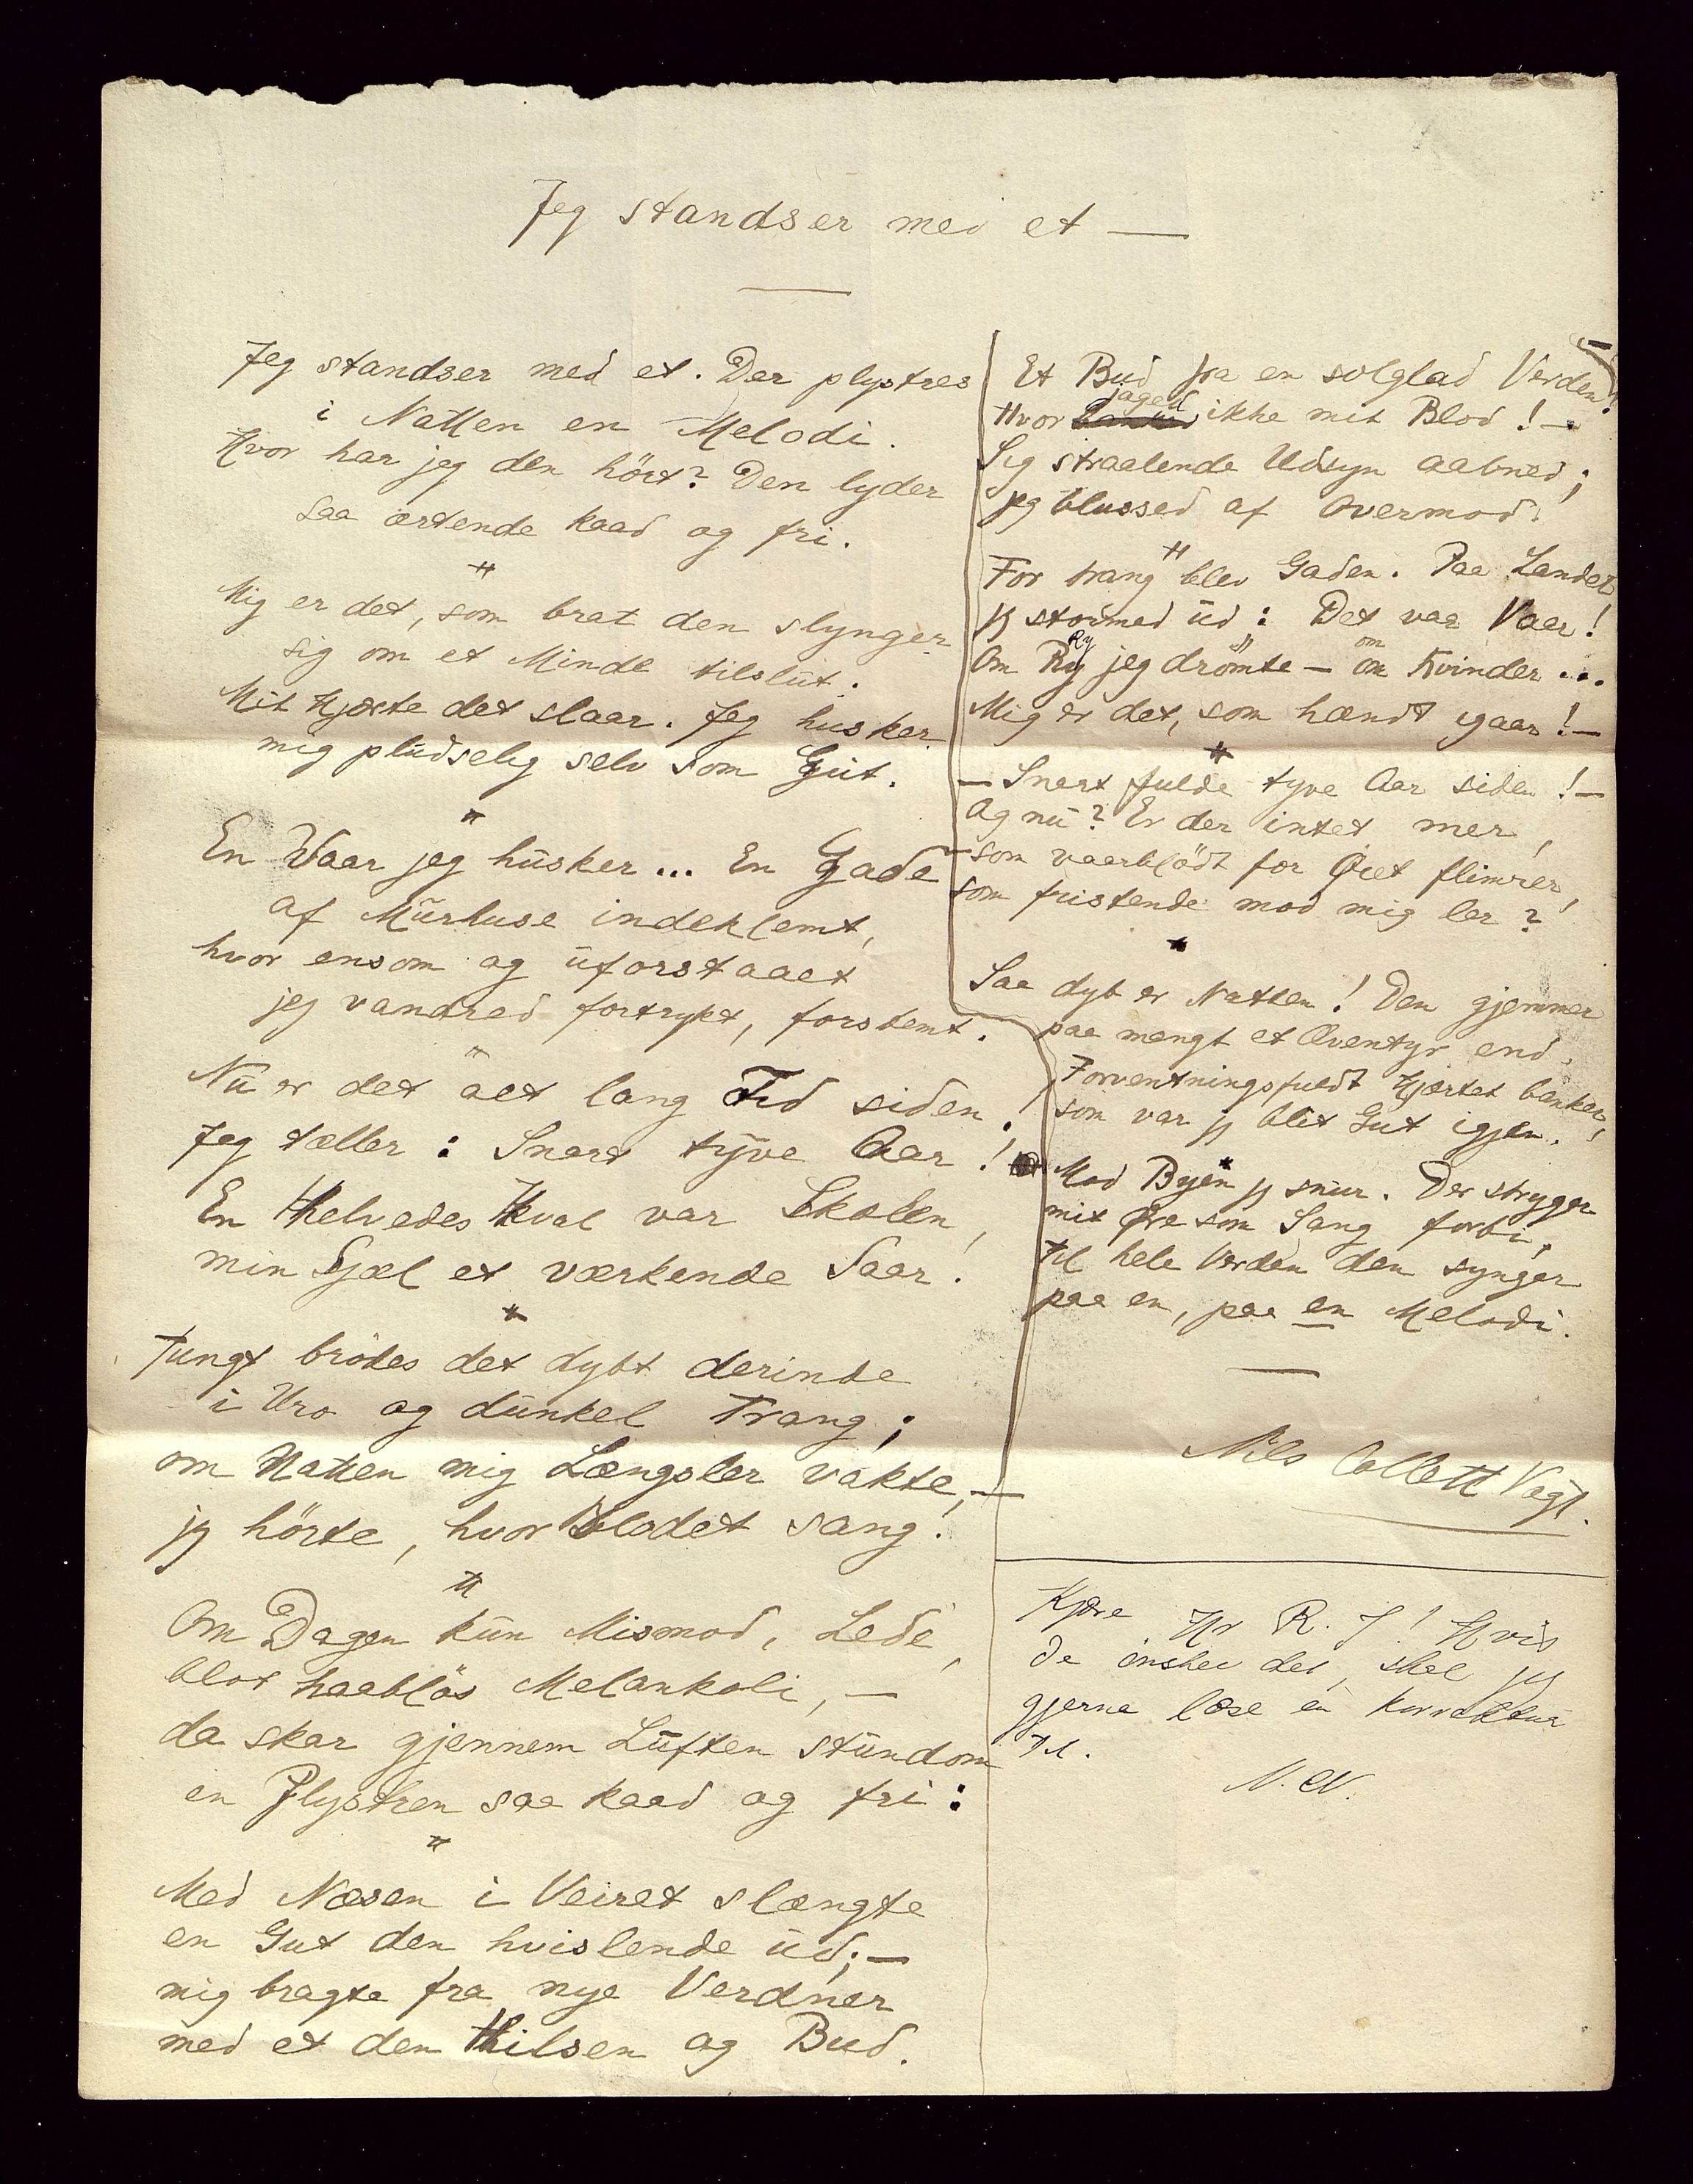 Jeg standser med et —
Jeg standser med et. Der plystres
i Natten en Melodi.
Hvor har jeg den hört? Den lyder
saa ærtende kaad og fri.
*
Mig er det, som brat den slynger
sig om et Minde tilslut.
Mit Hjærte det slaar. Jeg husker
mig pludselig selv som Gut.
*
En Vaar jeg husker... En Gade
af Murhuse indeklemt,
hvor ensom og uforstaaet
jeg vandred fortrykt, forstemt.
*
Nu er det alt lang Tid siden.
Jeg tæller: Snart tyve Aar!
En Helvedes Kval var Skolen,
min Sjæl et værkende Saar!
*
Tungt brödes det dybt derinde
i Uro og dunkel Trang;
om Natten mig Længsler vakte, —
jeg hörte, hvor Blodet sang!
*
Om Dagen kun Mismod, Lede,
blot haablös Melankoli, —
da skar gjennem Luften stundom
en Plystren saa kaad og fri:
*
Med Næsen i Veiret slængte
en Gut den hvislende ud; —
mig bragte fra nye Verdner
med et den Hilsen og Bud.
Et Bud fra en solglad Verden!
Hvor jaged ikke mit Blod! —
Sig straalende Udsyn aabned;
jeg blussed af Overmod!
*
For trang blev Gaden. Paa Landet
jeg stormed ud: Det var Vaar!
Om Ry jeg drömte — om Kvinder...
Mig er det, som hændt igaar! —
*
— Snart fulde tyve Aar siden! —
Og nu? Er der intet mer,
som vaarblödt for Öiet flimrer,
som fristende mod mig ler?
*
Saa dyb er Natten! Den gjemmer
paa mangt et Æventyr end.
Forventningsfuldt Hjærtet banker,
som var jeg blit Gut igjen.
*
Mod Byen jeg snur. Der stryger
mit Øre som Sang forbi,
til hele Verden den synger
paa en, paa en Melodi.
Nils Collett Vogt.
Kjære Hr R. J! Hvis
De önsker det, skal jeg
gjerne læse en Korrektur
N. V.